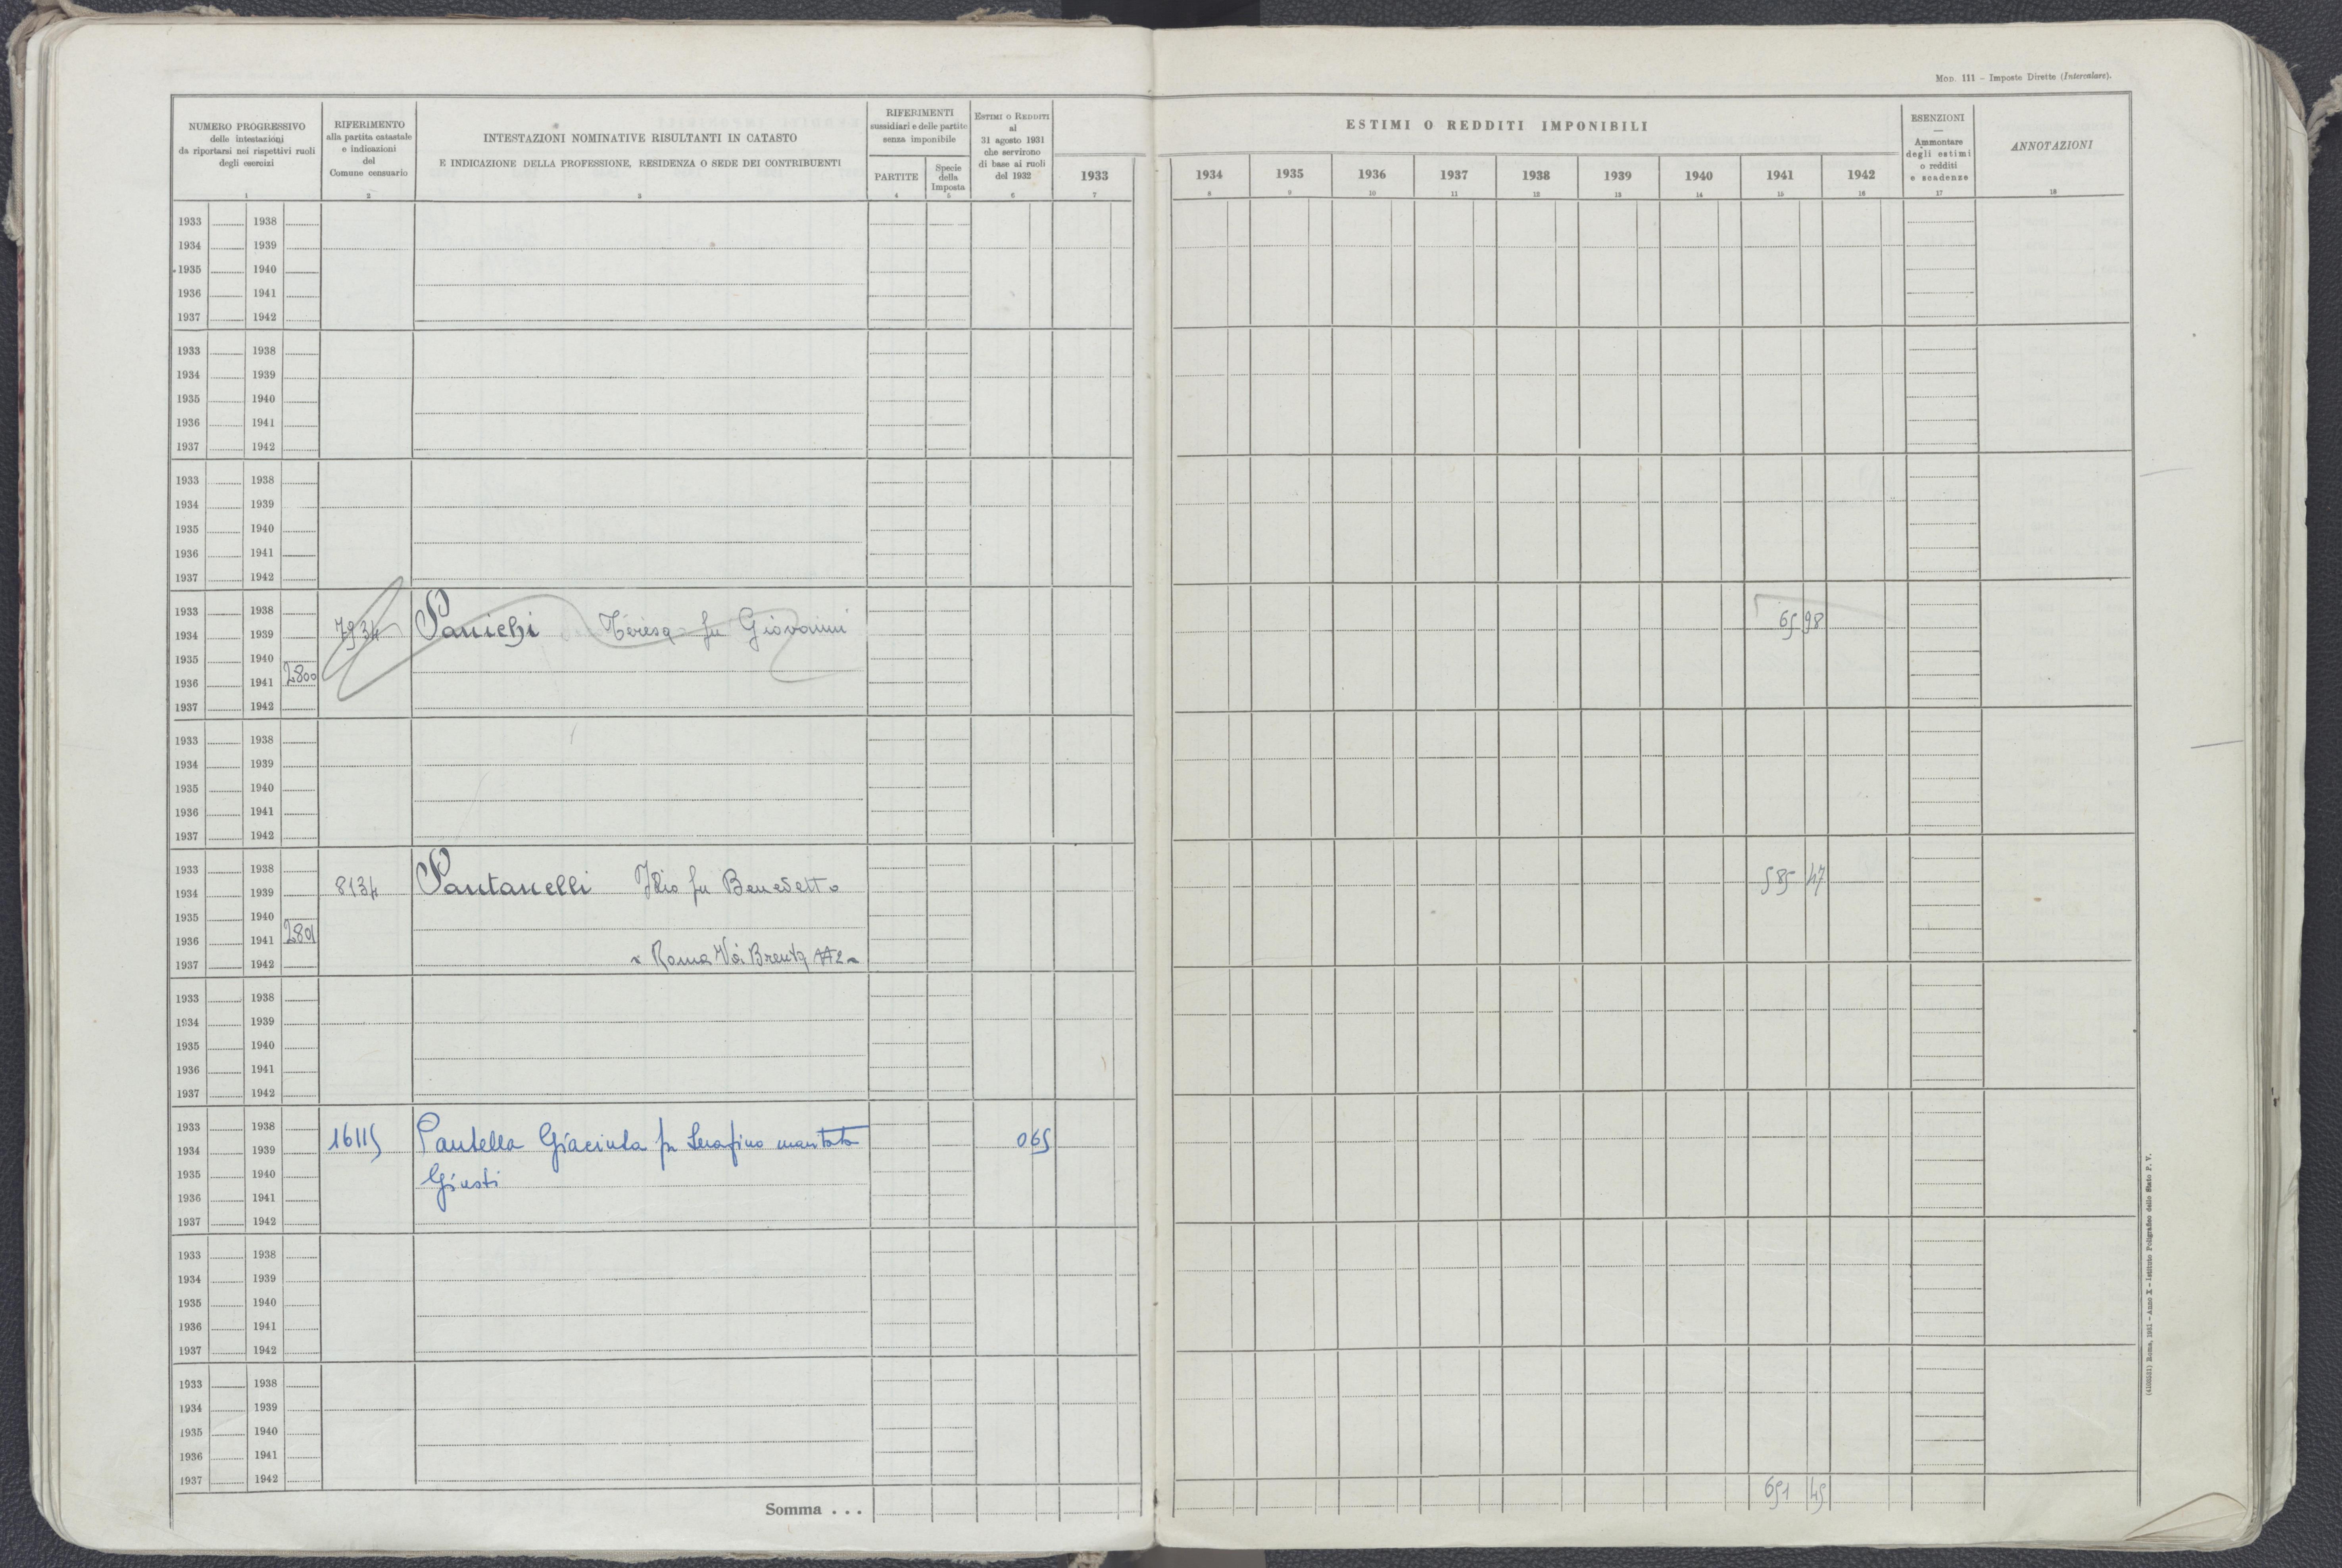 Mod. 111 – Imposte Dirette (Intercalare).
NUMERO PROGRESSIVO
delle intestazioni
da riportarsi nei rispettivi ruoli
degli esercizi
RIFERIMENTO
alla partita catastale
e indicazioni
del
Comune censuario
INTESTAZIONI NOMINATIVE RISULTANTI IN CATASTO
E INDICAZIONE DELLA PROFESSIONE, RESIDENZA O SEDE DEI CONTRIBUENTI
RIFERIMENTI
sussidiari e delle partite
senza imponibile
PARTITE
Specie
della
Imposta
Estimi o Redditi
al
31 agosto 1931
che servirono
di base ai ruoli
del 1932
ESTIMI O REDDITI IMPONIBILI
1933 1934 1935 1936 1937 1938 1939 1940 1941 1942
ESENZIONI
—
Ammontare
degli estimi
o redditi
e scadenze
ANNOTAZIONI
1 2 3 4 5 6 7 8 9 10 11 12 13 14 15 16 17 18
1933 1938
1934 1939
1935 1940
1936 1941
1937 1942
1933 1938
1934 1939
1935 1940
1936 1941
1937 1942
1933 1938
1934 1939
1935 1940
1936 1941
1937 1942
1933 1938
1934 1939 7934 Panichi Teresa fu Giovanni 65 98
1935 1940
1936 1941 2800
1937 1942
1933 1938
1934 1939
1935 1940
1936 1941
1937 1942
1933 1938
1934 1939 8134 Pantanelli Ilio fu Benedetto 585 47
1935 1940
1936 1941 2801
1937 1942 Roma Via Brenta
1933 1938
1934 1939
1935 1940
1936 1941
1937 1942
1933 1938
1934 1939 16115 Pantella Giacinta fu Serafino maritata 065
1935 1940 Giusti
1936 1941
1937 1942
1933 1938
1934 1939
1935 1940
1936 1941
1937 1942
1933 1938
1934 1939
1935 1940
1936 1941
1937 1942
Somma . . . 651 45
Roma, 1931 – Anno X – Istituto Poligrafico dello Stato P. V.